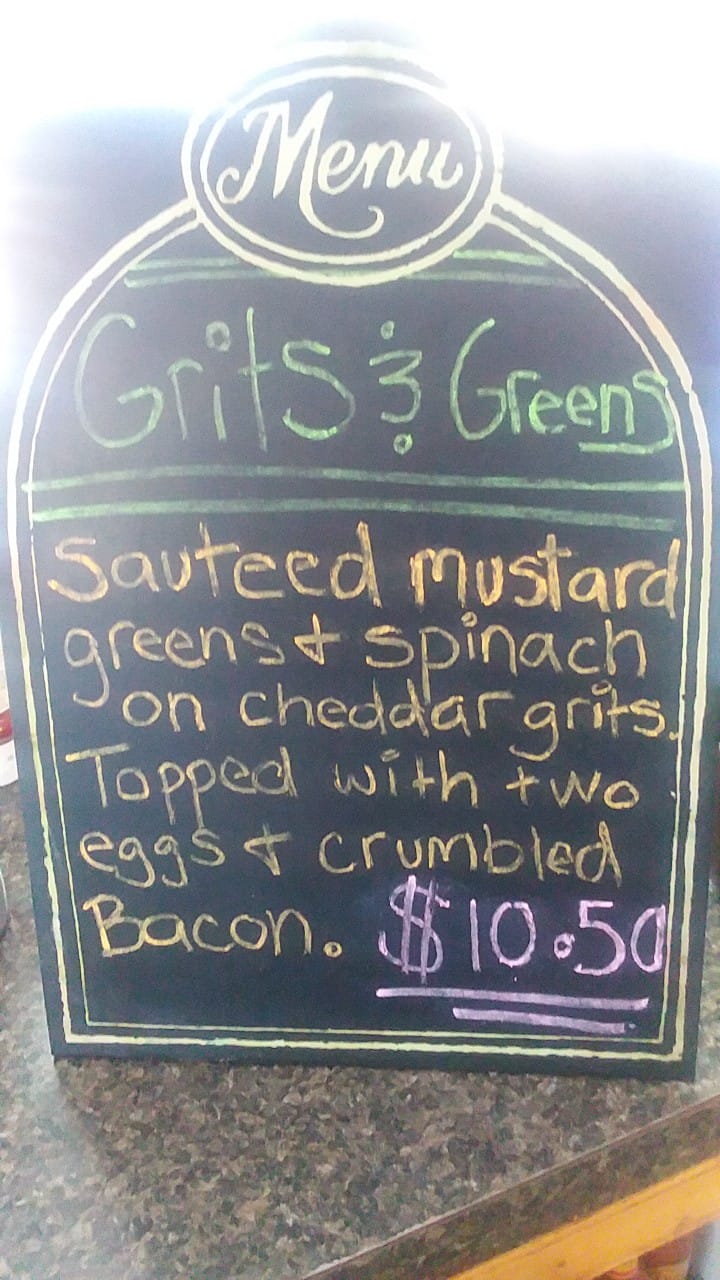 Menu
Grits & Greens
Sauteed mustard
greens & spinach
on cheddar grits.
Topped with two
eggs & crumbled
Bacon. $10.50